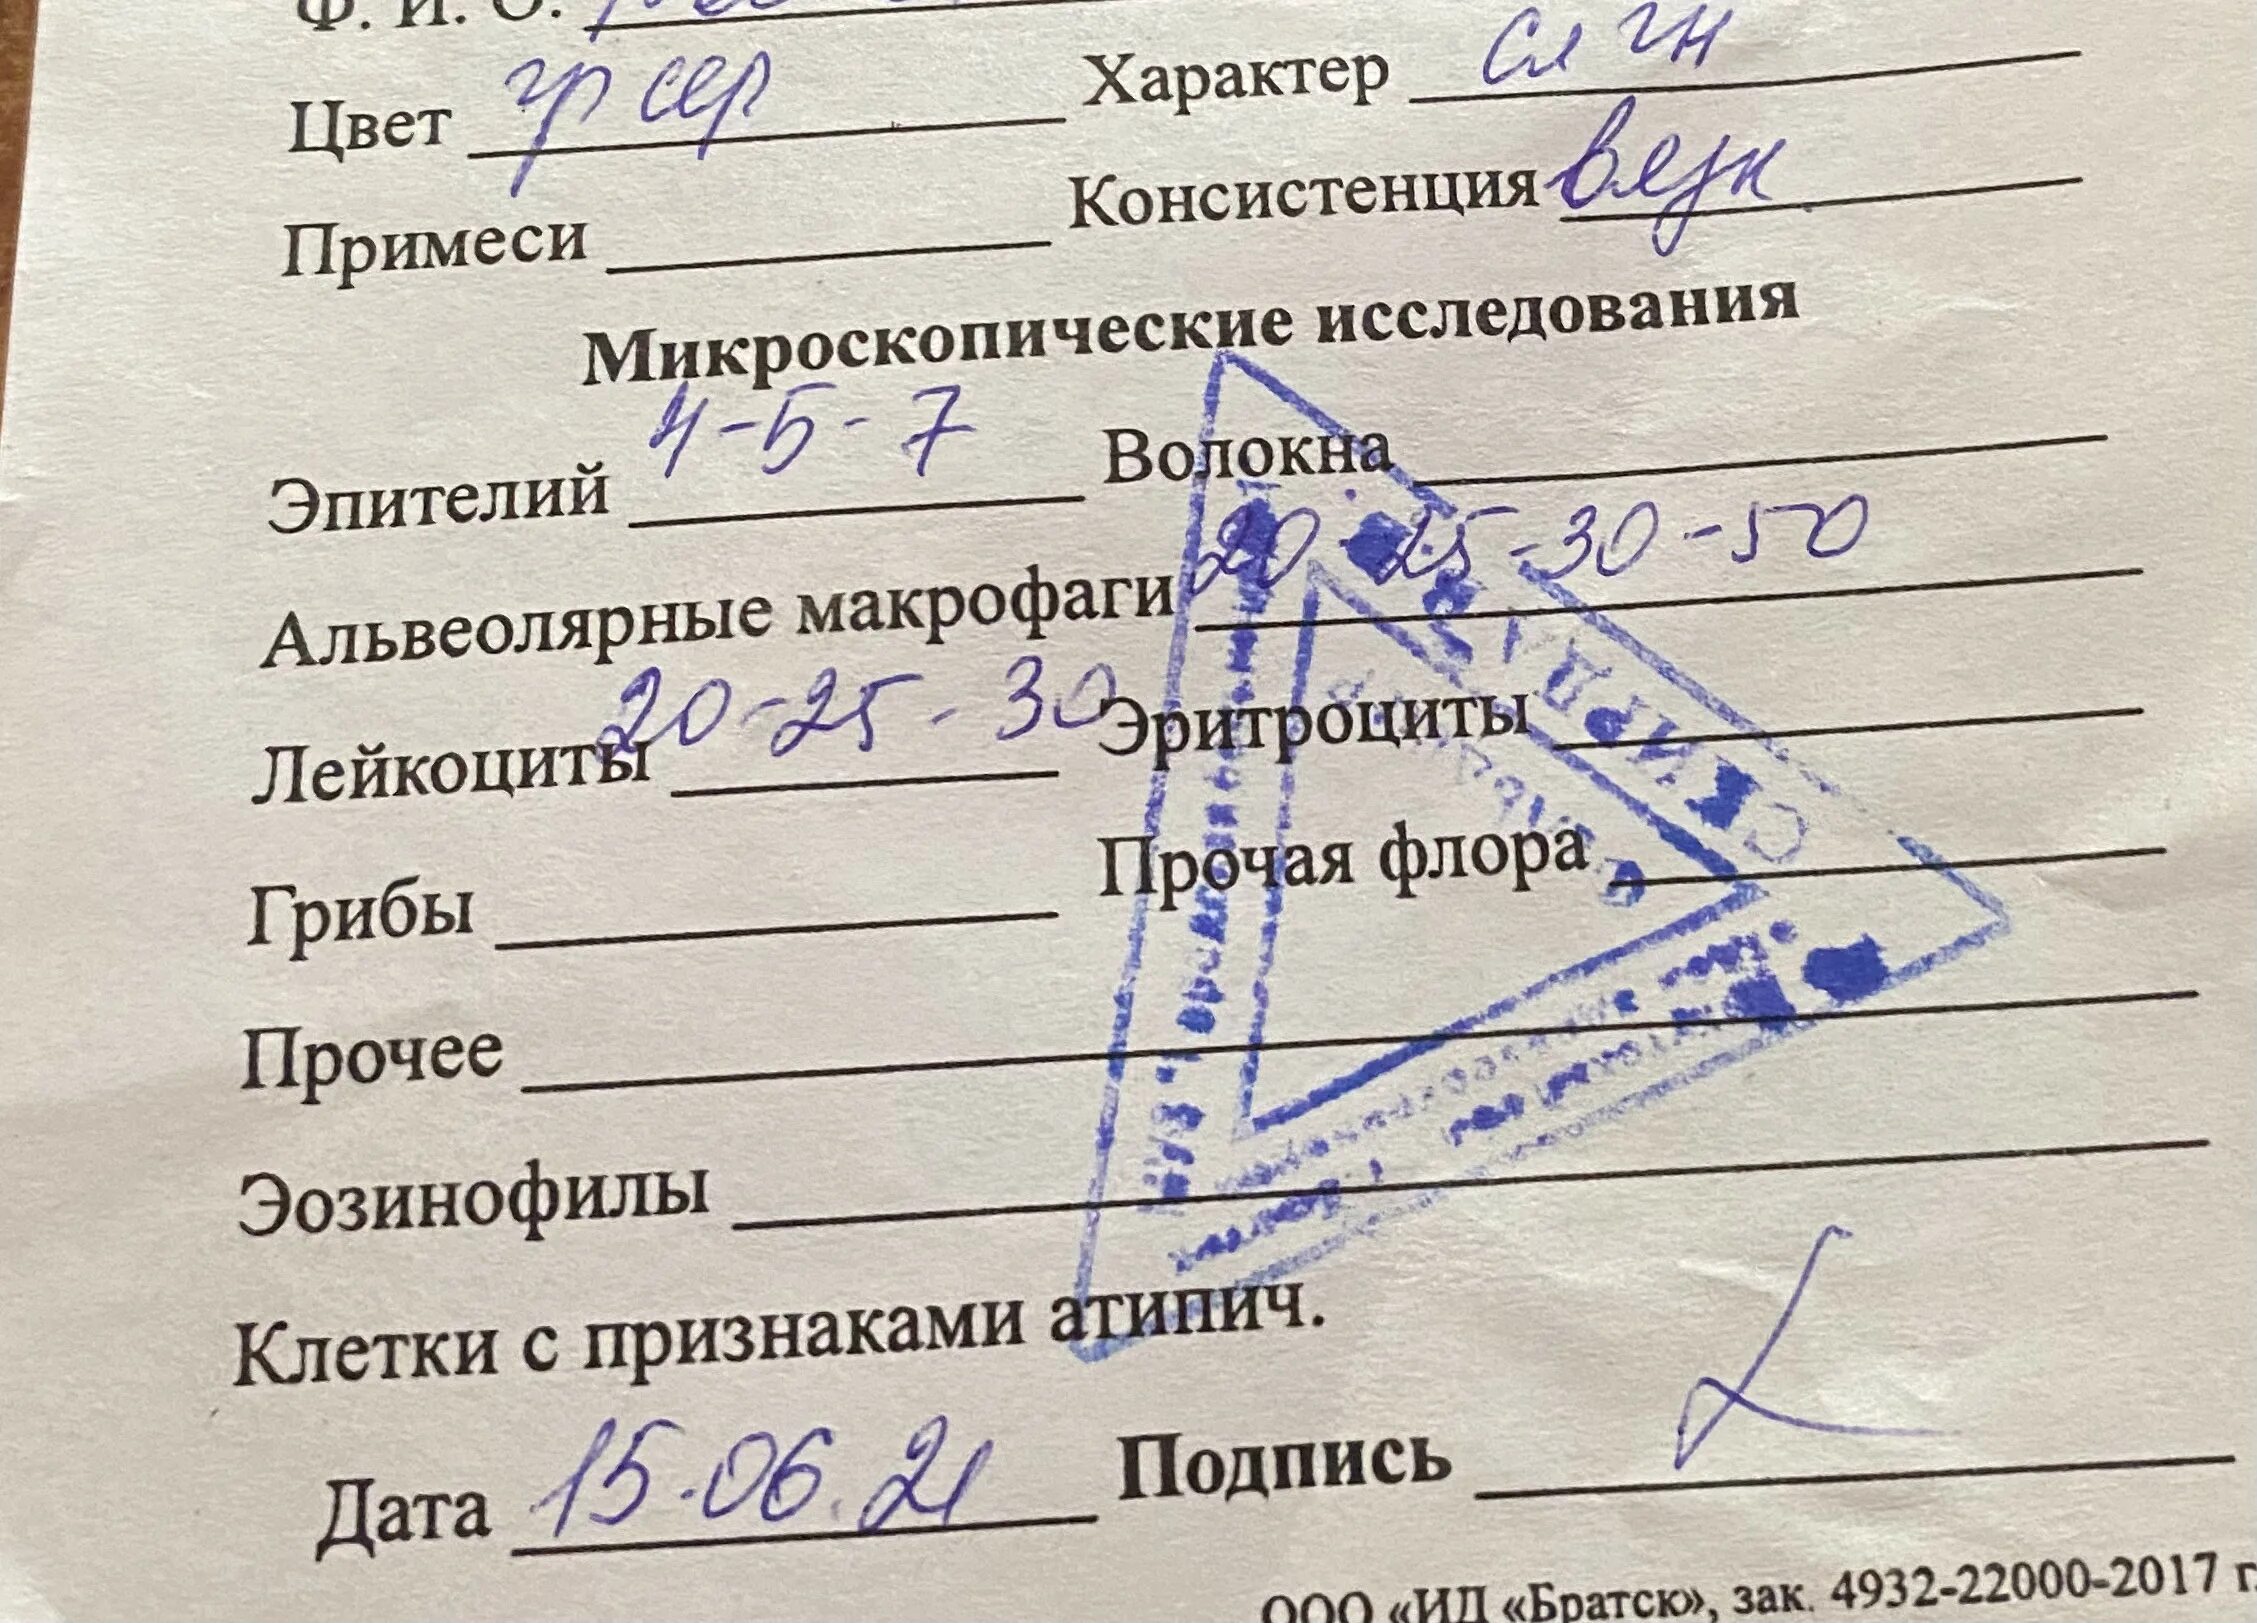 Ф. И. О.
Цвет гр сер Характер сл гн
Примеси Консистенция вязк
Микроскопические исследования
Эпителий 4-5-7 Волокна
Альвеолярные макрофаги 20-25-30-50
Лейкоциты 20-25-30 Эритроциты
Грибы Прочая флора
Прочее
Эозинофилы
Клетки с признаками атипич.
Дата 15.06.21 Подпись
ООО «ИД «Братск», зак. 4932-22000-2017 г.